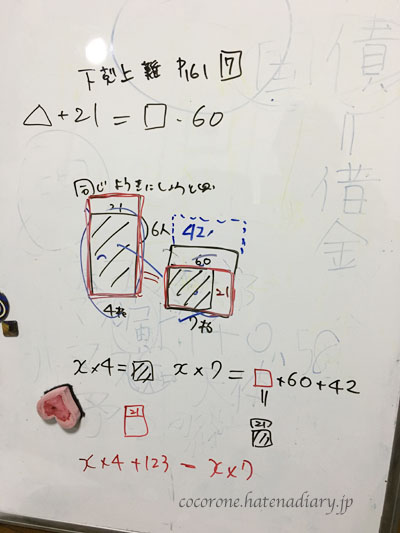 下剋上 難 P,161 7
△+21=□-60
同じようきにしようとした
21
6人
42人
60
21
4杯
7杯
x×4= x×7=□+60+42
21
21
x×4+123-x×7
債=借金
cocorone.hatenadiary.jp